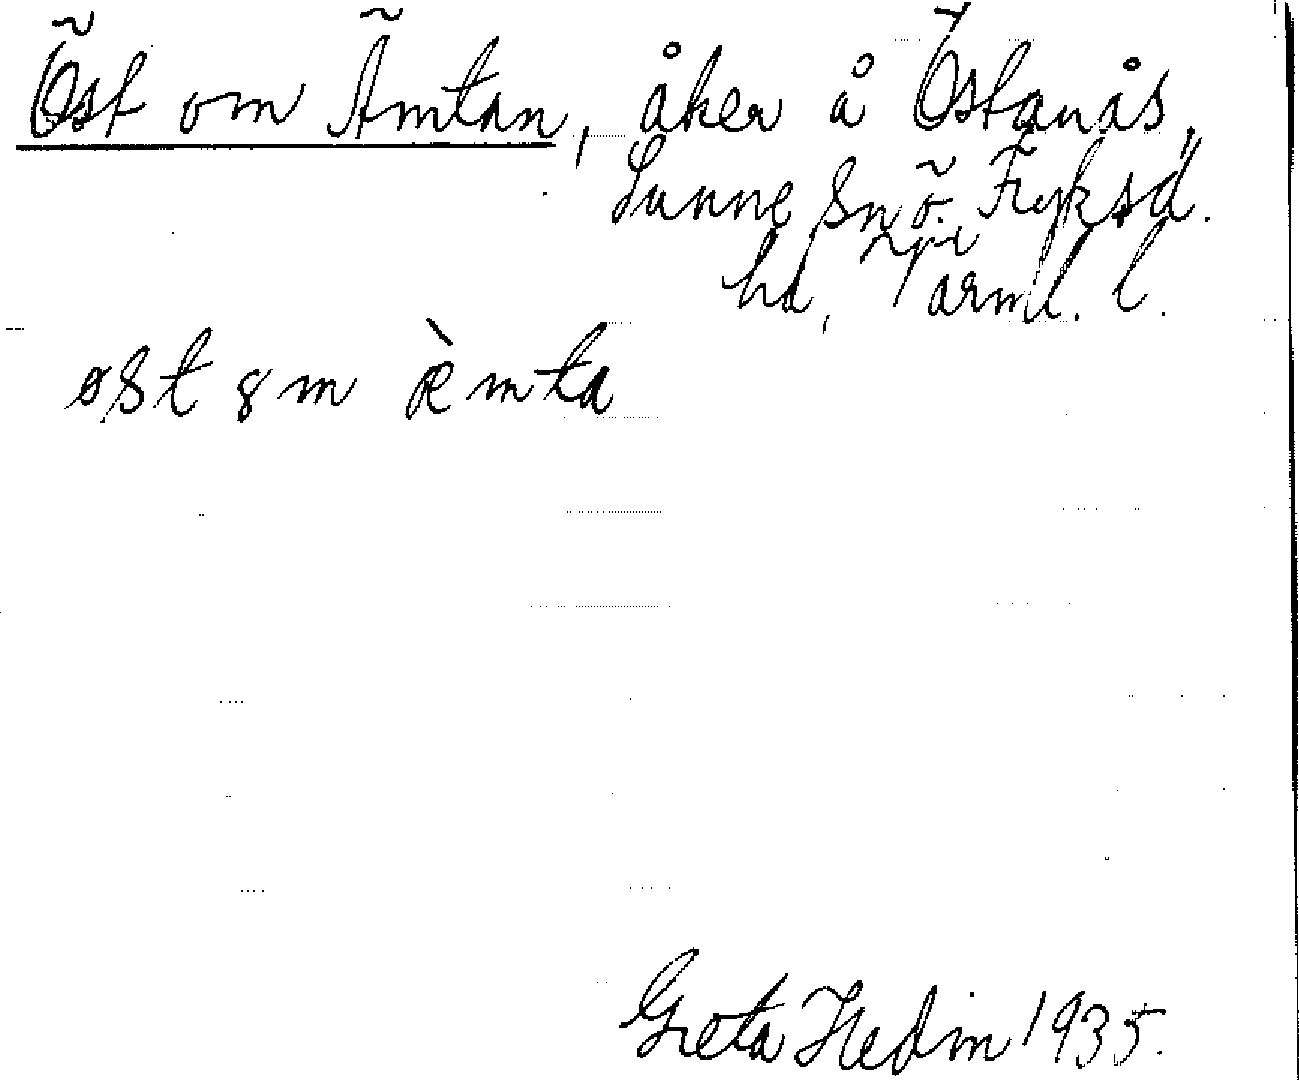 Öst om Ämtan, åker å Östanås,
Sunne sn, ö. Fryksd.
hd, Värml. l.
øst ɷm æ̀mta
Greta Hedin 1935.